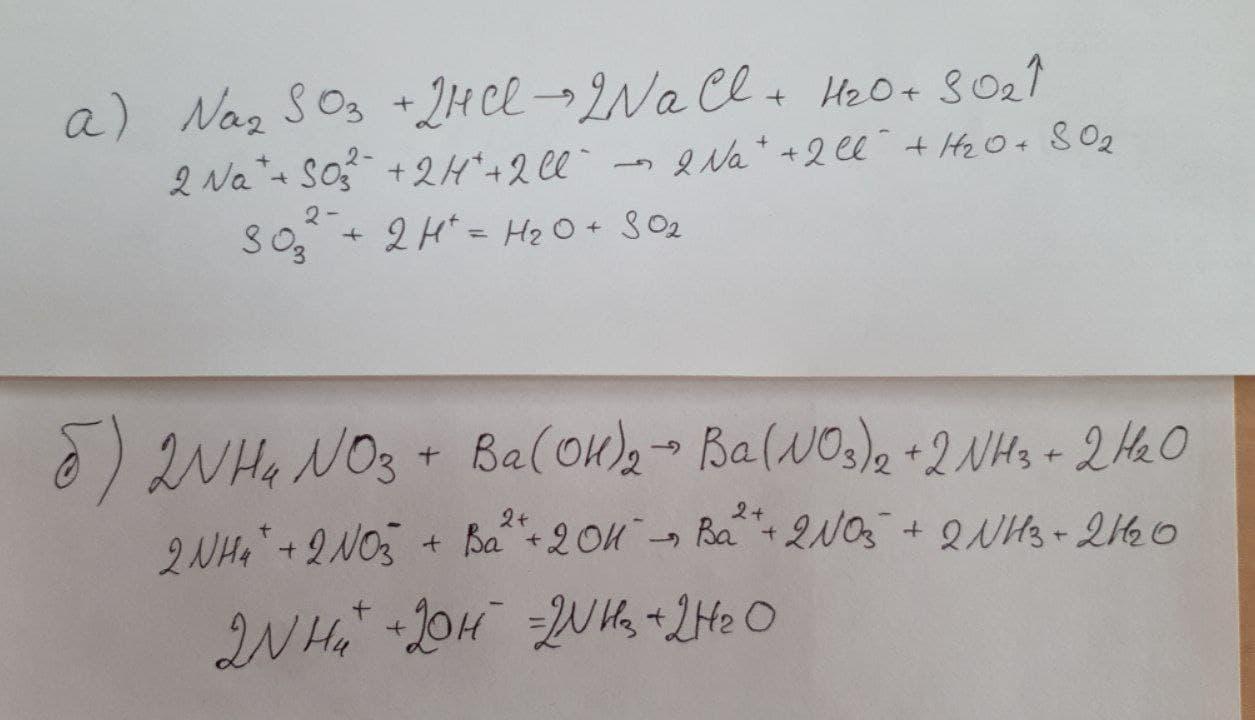 а) Na₂SO₃ + 2HCl → 2NaCl + H₂O + SO₂↑
2Na⁺ + SO₃²⁻ + 2H⁺ + 2Cl⁻ → 2Na⁺ + 2Cl⁻ + H₂O + SO₂
SO₃²⁻ + 2H⁺ = H₂O + SO₂
б) 2NH₄NO₃ + Ba(OH)₂ → Ba(NO₃)₂ + 2NH₃ + 2H₂O
2NH₄⁺ + 2NO₃⁻ + Ba²⁺ + 2OH⁻ → Ba²⁺ + 2NO₃⁻ + 2NH₃ + 2H₂O
2NH₄⁺ + 2OH⁻ = 2NH₃ + 2H₂O